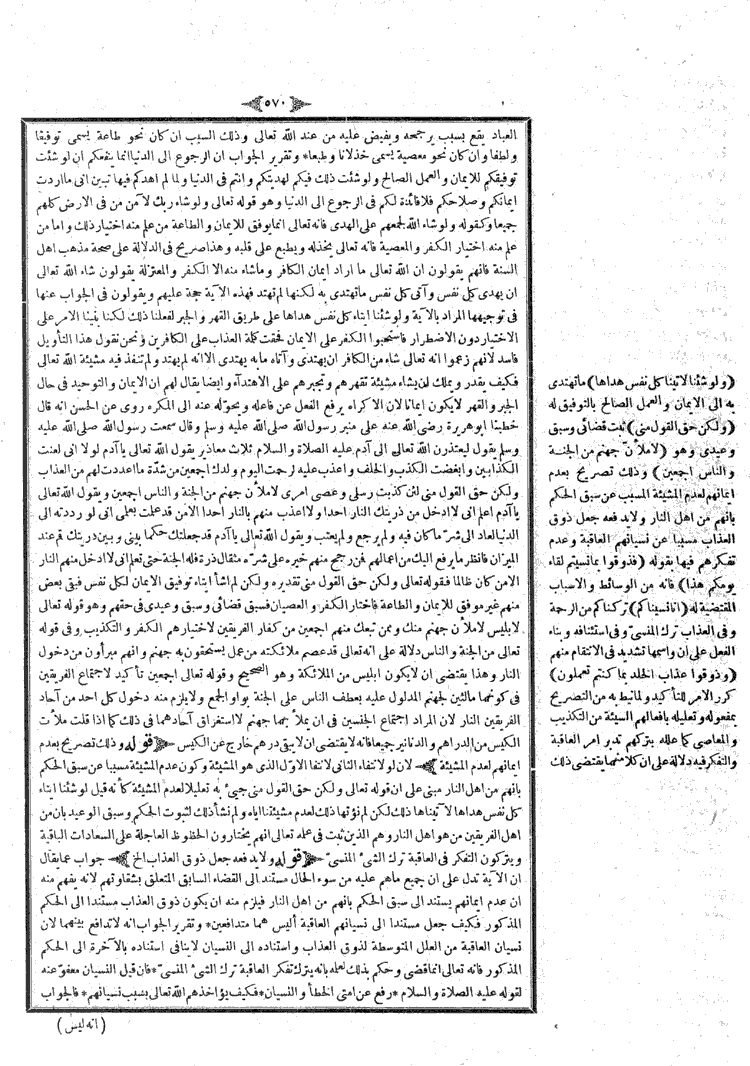 ٥٧٠
العباد يقع بسبب يرجحه ويفيض عليه من عند الله تعالى وذلك السبب ان كان نحو طاعة يسمى توفيقا
ولطفا وان كان نحو معصية يسمى خذلانا وطبعا * وتقرير الجواب ان الرجوع الى الدنيا انما ينفعكم ان لو شئت
توفيقكم للايمان والعمل الصالح ولو شئت ذلك فيكم لهديتكم وانتم فى الدنيا ولما لم اهدكم فيها تبين انى ما اردت
ايمانكم وصلاحكم فلا فائدة لكم فى الرجوع الى الدنيا وهو قوله تعالى ولو شاء ربك لآمن من فى الارض كلهم
جميعا وكقوله ولو شاء الله لجمعهم على الهدى فانه تعالى انما يوفق للايمان والطاعة من علم منه اختيار ذلك واما من
علم منه اختيار الكفر والمعصية فانه تعالى يخذله ويطبع على قلبه وهذا صريح فى الدلالة على صحة مذهب اهل
السنة فانهم يقولون ان الله تعالى ما اراد ايمان الكافر وما شاء منه الا الكفر والمعتزلة يقولون شاء الله تعالى
ان يهدى كل نفس وآتى كل نفس ما تهتدى به لكنها لم تهتد فهذه الآية حجة عليهم ويقولون فى الجواب عنها
فى توجيهها المراد بالآية ولو شئنا ايتاء كل نفس هداها على طريق القهر والجبر لفعلنا ذلك لكنا بنينا الامر على
الاختيار دون الاضطرار فاستحبوا الكفر على الايمان فحقت كلمة العذاب على الكافرين ونحن نقول هذا التأويل
فاسد لانهم زعموا انه تعالى شاء من الكافر ان يهتدى وآتاه ما به يهتدى الا انه لم يهتد ولم تنفذ فيه مشيئة الله تعالى
فكيف يقدر ويملك لن يشاء مشيئة تقهرهم وتجبرهم على الاهتداء وايضا يقال لهم ان الايمان والتوحيد فى حال
الجبر والقهر لا يكون ايمانا لان الاكراه يرفع الفعل عن فاعله ويحوّله عنه الى المكره روى عن الحسن انه قال
خطبنا ابو هريرة رضى الله عنه على منبر رسول الله صلى الله عليه وسلم وقال سمعت رسول الله صلى الله عليه
وسلم يقول ليعتذرن الله تعالى الى آدم عليه الصلاة والسلام ثلاث معاذير يقول الله تعالى يا آدم لولا انى لعنت
الكذابين وابغضت الكذب والخلف واعذب عليه لرحمت اليوم ولدك اجمعين من شدّة ما اعددت لهم من العذاب
ولكن حق القول منى لئن كذبت رسلى وعصى امرى لاملأن جهنم من الجنة والناس اجمعين ويقول الله تعالى
يا آدم اعلم انى لا ادخل من ذريتك النار احدا ولا اعذب منهم بالنار احدا الا من قد علمت بعلمى انى لو رددته الى
الدنيا لعاد الى شرّ ما كان فيه ولم يرجع ولم يعتب ويقول الله تعالى يا آدم قد جعلتك حكما بينى وبين ذريتك قم عند
الميزان فانظر ما يرفع اليك من اعمالهم فمن رجح منهم خيره على شرّه مثقال ذرة فله الجنة حتى تعلم انى لا ادخل منهم النار
الا من كان ظالما فقوله تعالى ولكن حق القول منى تقديره ولكن لم اشأ ايتاء توفيق الايمان لكل نفس فبقى بعض
منهم غير موفق للايمان والطاعة فاختار الكفر والعصيان فسبق قضائى وسبق وعيدى فى حقهم وهو قوله تعالى
لابليس لاملأن جهنم منك وممن تبعك منهم اجمعين من كفار الفريقين لاختيارهم الكفر والتكذيب وفى قوله
تعالى من الجنة والناس دلالة على انه تعالى قد عصم ملائكته من عمل يستحقون به جهنم وانهم مبرأون من دخول
النار وهذا يقتضى ان لا يكون ابليس من الملائكة وهو الصحيح وقوله تعالى اجمعين تأكيد لاجتماع الفريقين
فى كونهما مالئين لجهنم المدلول عليه بعطف الناس على الجنة بواو الجمع ولا يلزم منه دخول كل احد من آحاد
الفريقين النار لان المراد اجتماع الجنسين فى ان يملأ بهما جهنم لا استغراق آحادهما فى ذلك كما اذا قلت ملأت
الكيس من الدراهم والدنانير جميعا فانه لا يقتضى ان لا يبقى درهم خارج عن الكيس (قوله وذلك تصريح بعدم
ايمانهم لعدم المشيئة) لان لو لانتفاء الثانى لانتفاء الاوّل الذى هو المشيئة وكون عدم المشيئة مسببا عن سبق الحكم
بانهم من اهل النار مبنى على ان قوله تعالى ولكن حق القول منى جيىء به تعليلا لعدم المشيئة كأنه قيل لو شئنا ايتاء
كل نفس هداها لآتيناها ذلك لكن لم نؤتها ذلك لعدم مشيئتنا اياه ولم نشأ ذلك لثبوت الحكم وسبق الوعيد بان من
اهل الفريقين من هو اهل النار وهم الذين ثبت فى علمه تعالى انهم يختارون الحظوظ العاجلة على السعادات الباقية
ويتركون التفكر فى العاقبة ترك الشئ المنسىّ (قوله ولا يدفعه جعل ذوق العذاب الخ) جواب عما يقال
ان الآية تدل على ان جميع ما هم عليه من سوء الحال مستند الى القضاء السابق المتعلق بشقاوتهم لانه يفهم منه
ان عدم ايمانهم يستند الى سبق الحكم بانهم من اهل النار فيلزم منه ان يكون ذوق العذاب مستندا الى الحكم
المذكور فكيف جعل مستندا الى نسيانهم العاقبة أليس هما متدافعين * وتقرير الجواب انه لا تدافع بينهما لان
نسيان العاقبة من العلل المتوسطة لذوق العذاب واستناده الى النسيان لا ينافى استناده بالآخرة الى الحكم
المذكور فانه تعالى انما قضى وحكم بذلك لعلمه بانه يترك تفكر العاقبة ترك الشئ المنسىّ * فان قيل النسيان معفوّ عنه
لقوله عليه الصلاة والسلام * رفع عن امتى الخطأ والنسيان * فكيف يؤاخذهم الله تعالى بسبب نسيانهم * فالجواب
(انه ليس)
(ولو شئنا لآتينا كل نفس هداها) ما تهتدى
به الى الايمان والعمل الصالح بالتوفيق له
(ولكن حق القول منى) ثبت قضائى وسبق
وعيدى وهو (لاملأنّ جهنم من الجنة
والناس اجمعين) وذلك تصريح بعدم
ايمانهم لعدم المشيئة المسبب عن سبق الحكم
بانهم من اهل النار ولا يدفعه جعل ذوق
العذاب مسببا عن نسيانهم العاقبة وعدم
تفكرهم فيها بقوله (فذوقوا بما نسيتم لقاء
يومكم هذا) فانه من الوسائط والاسباب
المقتضية له (انا نسيناكم) تركناكم من الرحمة
وفى العذاب ترك المنسىّ وفى استئنافه وبناء
الفعل على ان واسمها تشديد فى الانتقام منهم
(وذوقوا عذاب الخلد بما كنتم تعملون)
كرر الامر للتأكيد ولما نيط به من التصريح
بمفعوله وتعليله بافعالهم السيئة من التكذيب
والمعاصى كما علله بتركهم تدبر امر العاقبة
والتفكر فيه دلالة على ان كلا منهما يقتضى ذلك